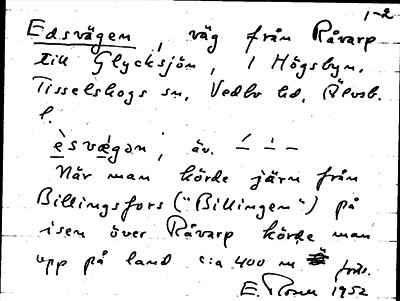 1-2
Edsvägen, väg från Råvarp
till Glycksjön, i Högsbyn,
Tisselskogs sn, Vedbo hd, Älvsb.
l.
è̱svæ̱gan, äv. –́ – –
När man körde järn från
Billingsfors ("Billingen") på
isen över Råvarp körde man
upp på land c:a 400 m
E. Rosen 1952